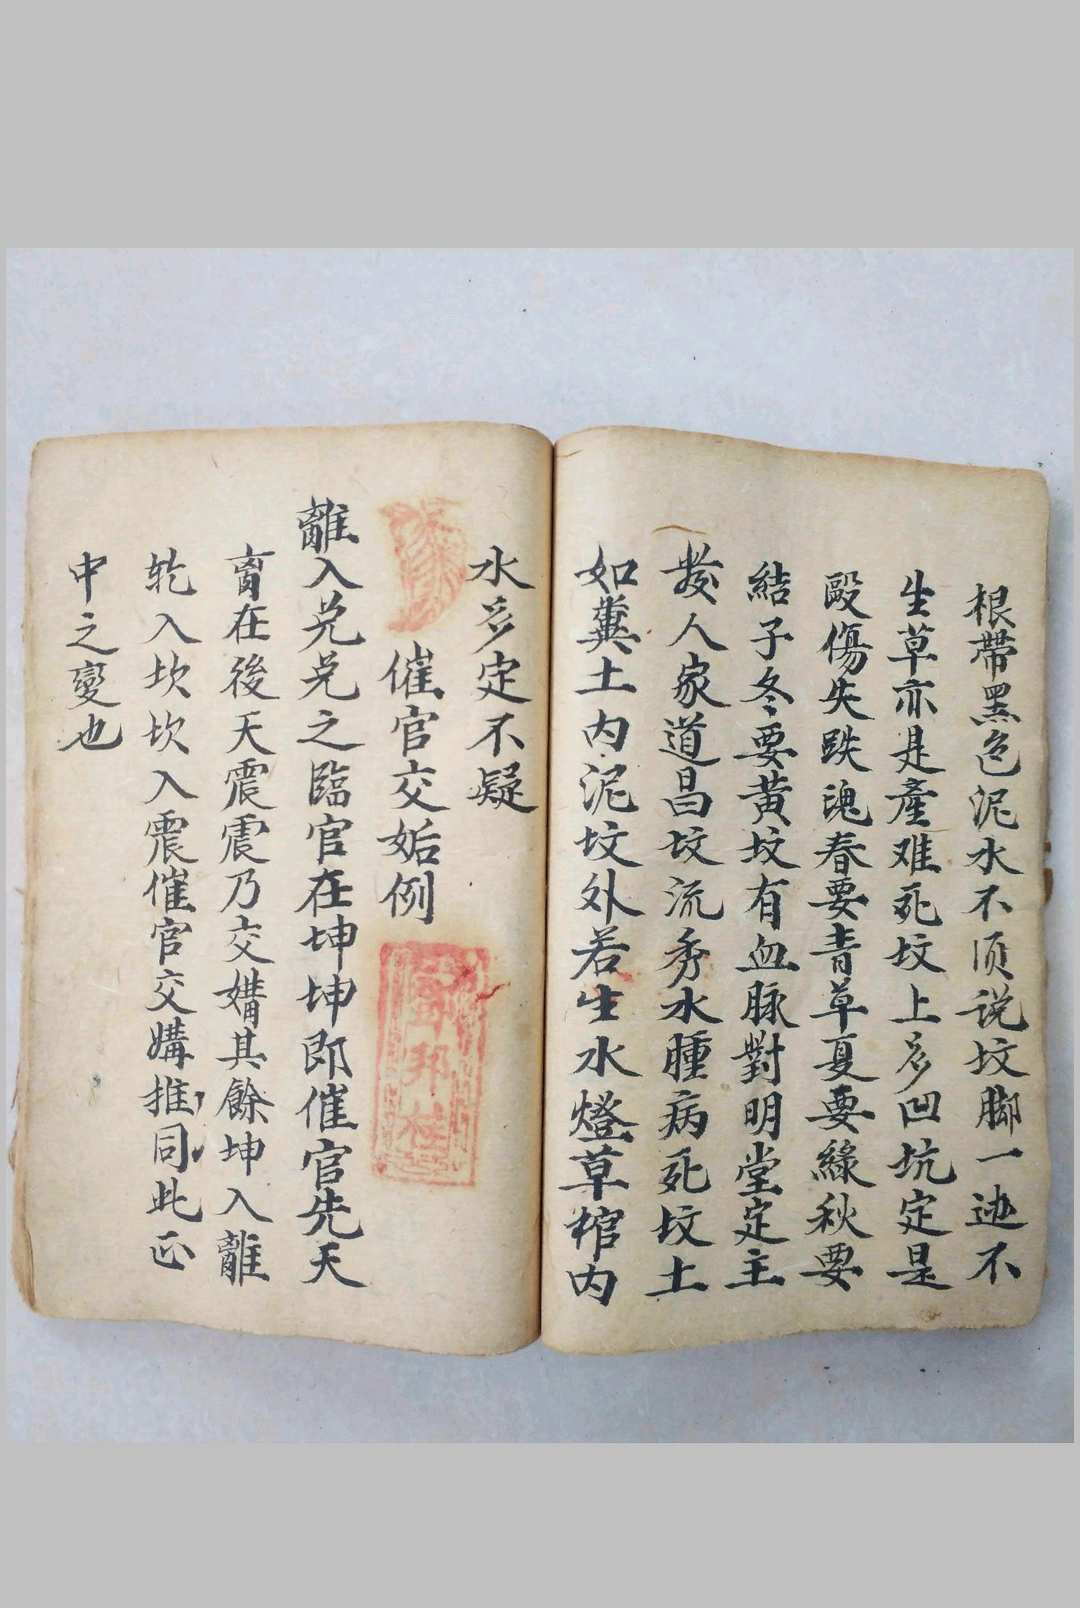 根帶黑色泥水不須说坟脚一边不
生草亦是產难死坟上多凹坑定是
毆傷失跌魂春要青草夏要綠秋要
結子冬要黄坟有血脉對明堂定主
發人家道昌坟流秀水腫病死坟土
如糞土内泥坟外若生水燈草棺内
水多定不疑
催官交姤例
離入兑兑之臨官在坤坤即催官先天
在後天震震乃交媾其餘坤入離
乾入坎坎入震催官交媾推同此正
中之變也